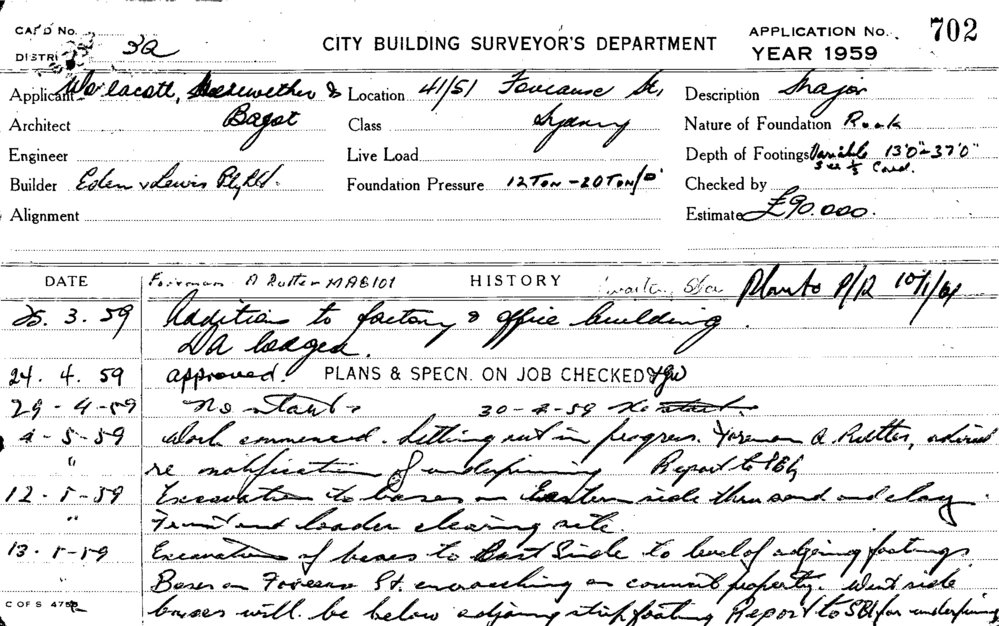 CARD No. CITY BUILDING SURVEYOR'S DEPARTMENT APPLICATION No. 702
DISTRI 3A YEAR 1959
Applicant Woolacott, Merewether & Location 41/51 Foveaux St, Description Major
Architect Bagot Class Sydney Nature of Foundation Rock
Engineer Live Load Depth of Footings Variable 13'0"-37'0"
See Card.
Builder Eden & Lewis Pty Ltd. Foundation Pressure 12 TON - 20 TON/□' Checked by
Alignment Estimate £90.000.
DATE Foreman A Rutter MA6101 HISTORY Plan to P/R 10/1/61
25. 3. 59 Addition to factory & office building.
DA lodged.
24. 4. 59 approved. PLANS & SPECN. ON JOB CHECKED
29-4-59 No start 30-4-59 No start
4-5-59 Work commenced. Setting out in progress. Foreman A Rutter, advised
" re notification of underpinning Report to SBI
12-5-59 Excavation to bases on Eastern side thru sand and clay.
" Front end loader clearing site.
13-5-59 Excavation of bases to East Side to level of adjoing footings.
Bases on Foveaux St. encroaching on council property. West side
C OF S 475 bases will be below adjoing strip footing Report to SBI for underpinning